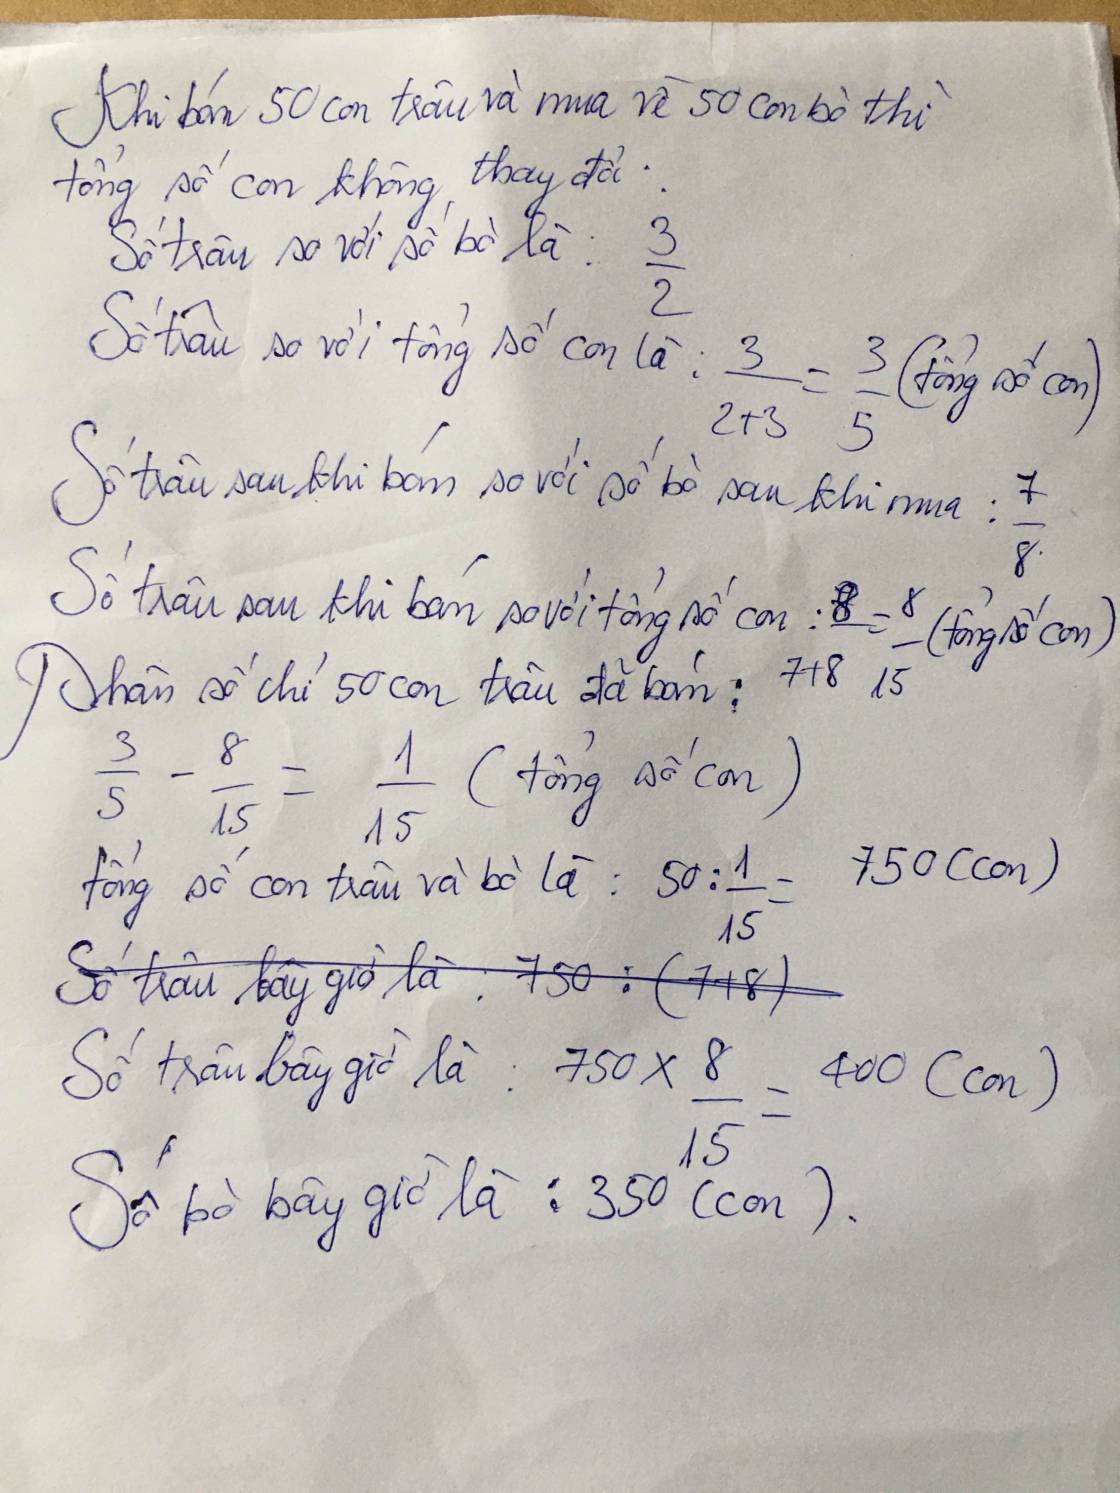 Khi bán 50 con trâu và mua về 50 con bò thì
tổng số con không thay đổi.
Số trâu so với số bò là: 3/2
Số trâu so với tổng số con là: 3/2+3 = 3/5 (tổng số con)
Số trâu sau khi bán so với số bò sau khi mua: 7/8
Số trâu sau khi bán so với tổng số con: 8/7+8 = 8/15 (tổng số con)
Phân số chỉ 50 con trâu đã bán:
3/5 - 8/15 = 1/15 (tổng số con)
tổng số con trâu và bò là: 50 : 1/15 = 750 (con)
Số trâu bây giờ là: 750 : (7+8)
Số trâu bây giờ là: 750 x 8/15 = 400 (con)
Số bò bây giờ là: 350 (con).